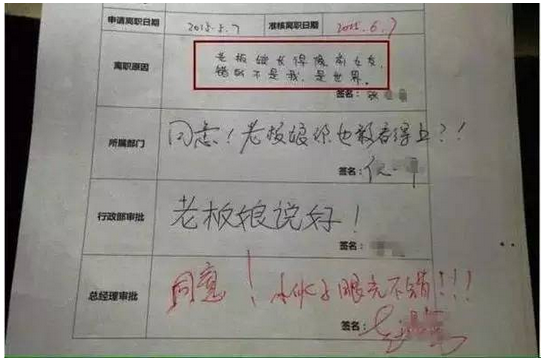 申请离职日期 2015.5.7 准核离职日期 2015.6.7
离职原因
老板娘长得像前女友,
错的不是我,是世界。
签名:张
所属部门
同志!老板娘你也敢看得上?!
签名:
行政部审批
老板娘说好!
签名:
总经理审批
同意!小伙子眼光不错!!!
签名: